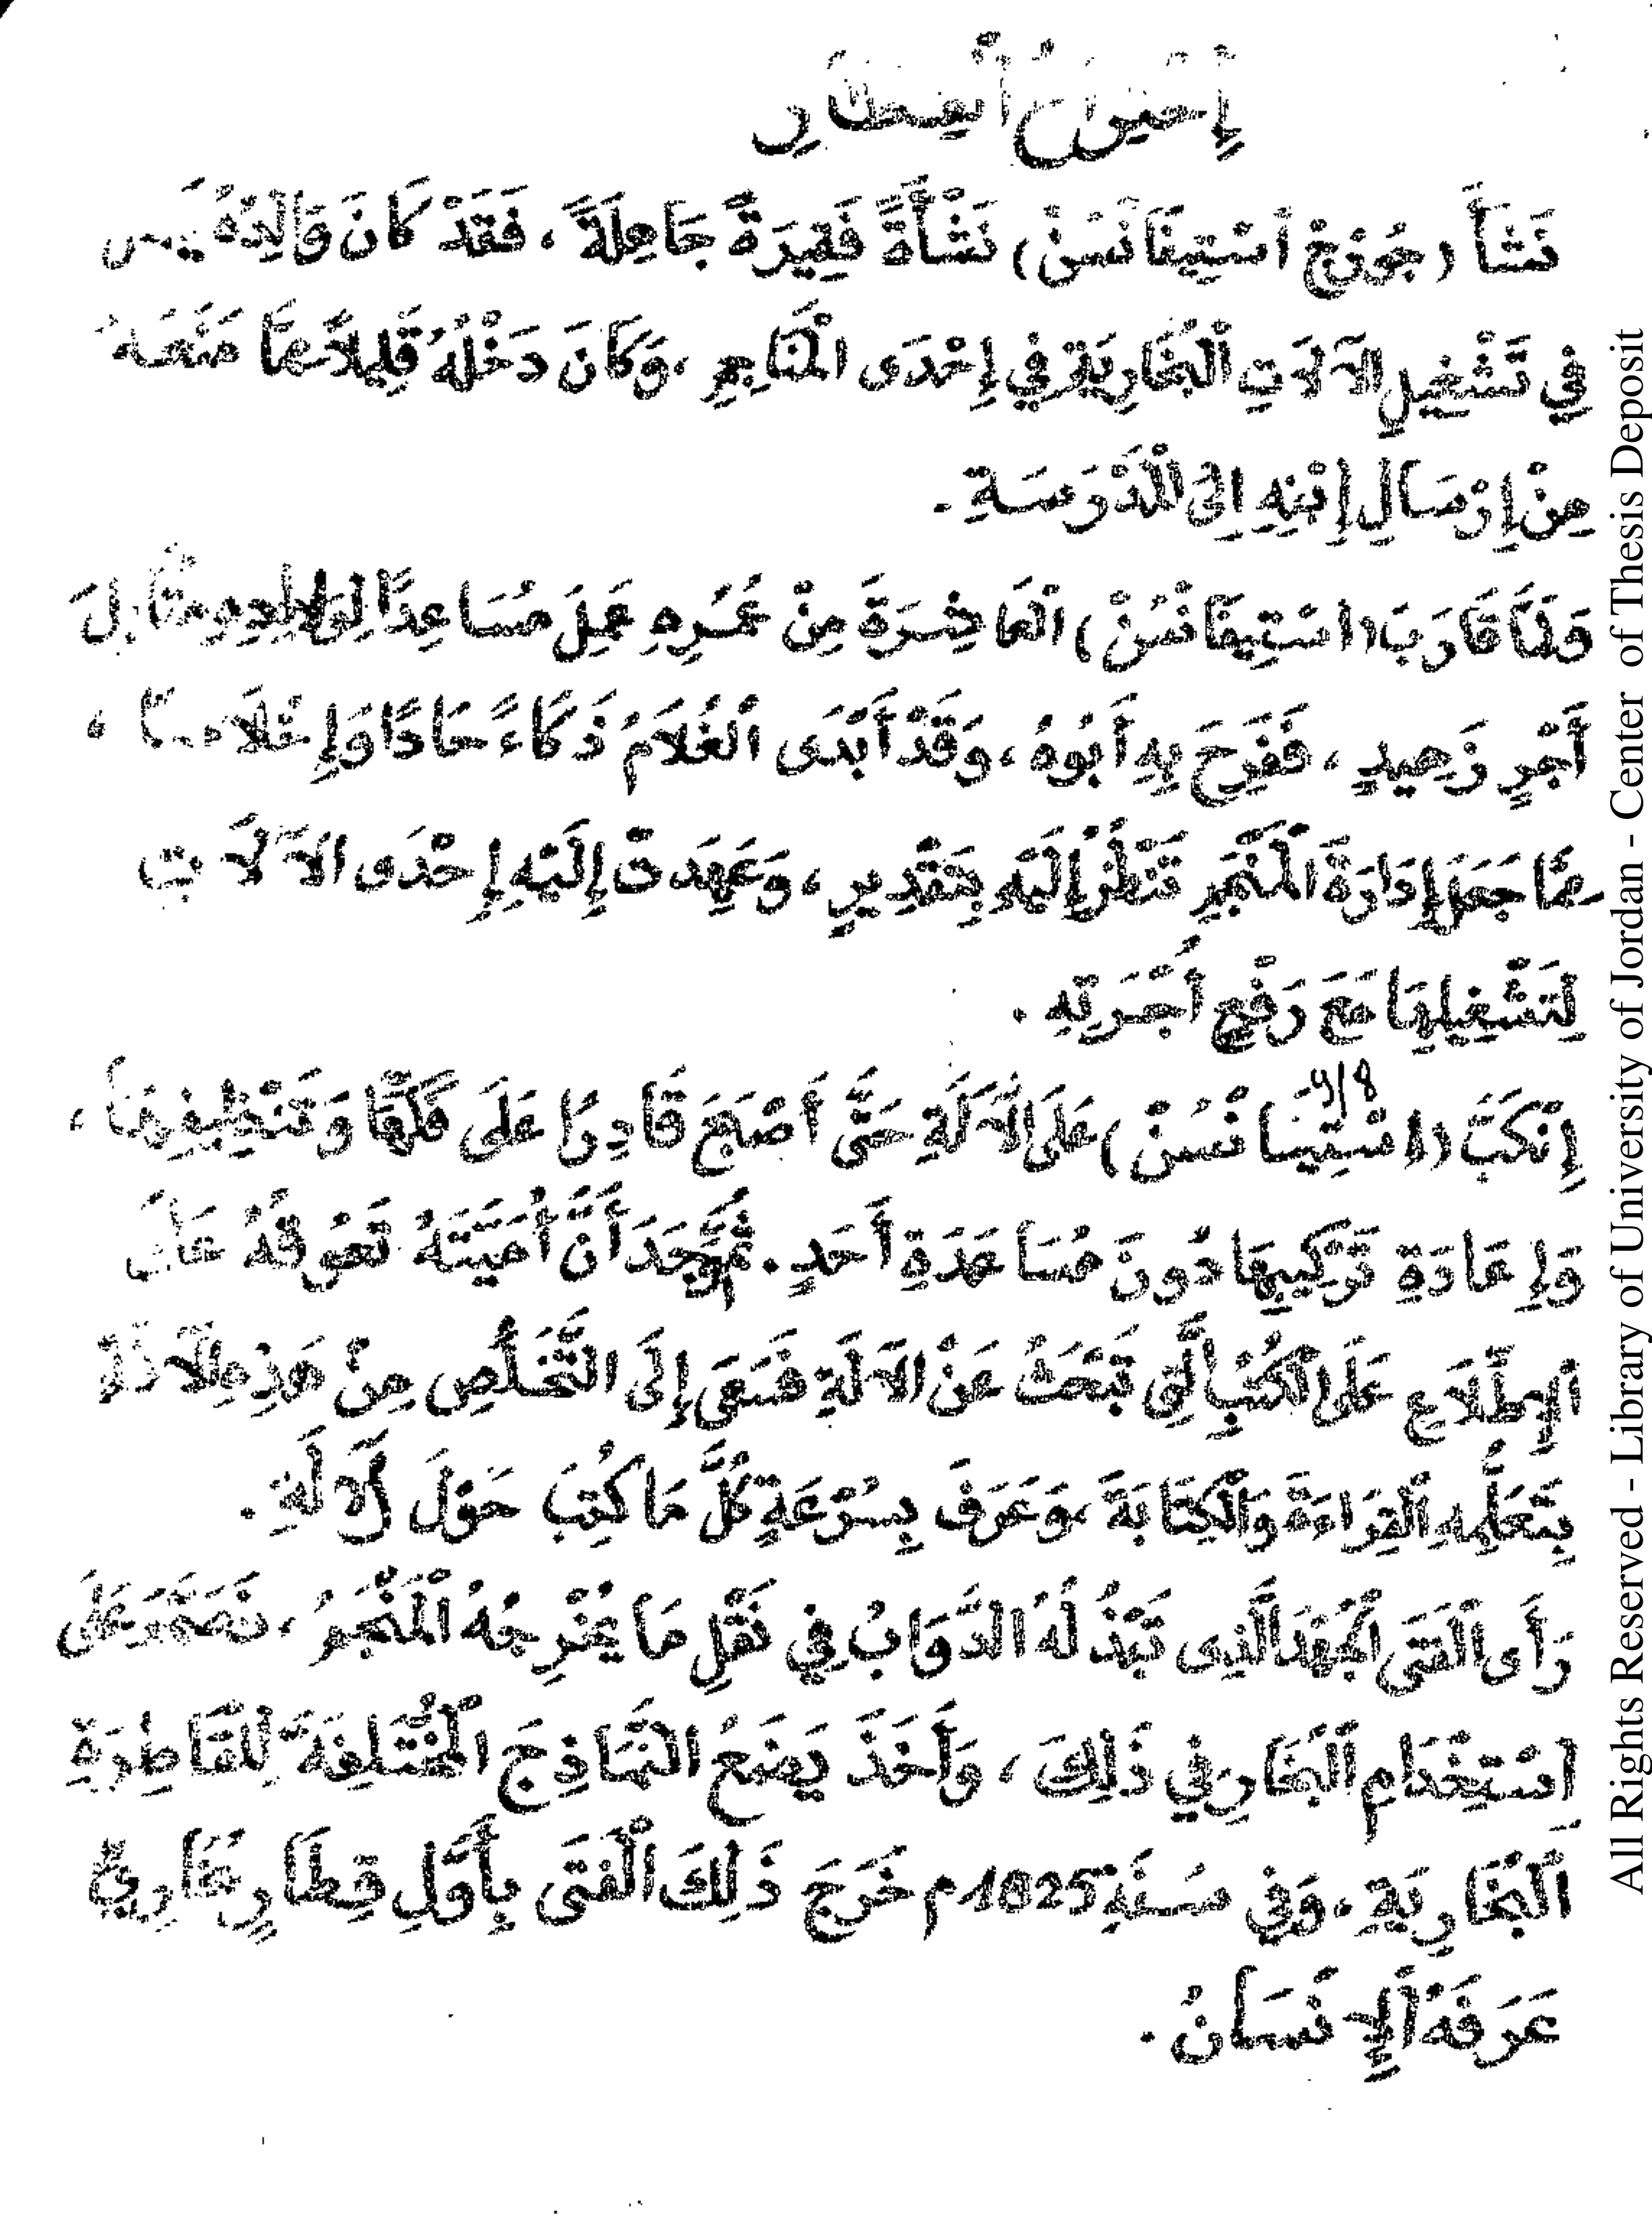 إِخْتِرَاعُ ٱلْقِطَارِ
نَشَأَ (جُورْجْ ٱسْتِيفَانْسُنْ) نَشْأَةً فَقِيرَةً جَاهِلَةً، فَقَدْ كَانَ وَالِدُهُ
فِي تَشْغِيلِ الآلَاتِ الْبُخَارِيَةِ فِي إِحْدَى الْمَنَاجِمِ، وَكَانَ دَخْلُهُ قَلِيلاً مِمَّا مَنَعَهُ
مِنْ إِرْسَالِ إِبْنِهِ إِلَى الْمَدْرَسَةِ.
وَلَمَّا قَارَبَ (اسْتِيفَانْسُنْ) الْعَاشِرَةَ مِنْ عُمْرِهِ عَمِلَ مُسَاعِدًا لِوَالِدِهِ مُقَابِلَ
أَجْرٍ زَهِيدٍ، فَفَرِحَ بِهِ أَبُوهُ، وَقَدْ أَبْدَى ٱلْغُلَامُ ذَكَاءً حَادًا وَإِخْلَاصًا،
مِمَّا جَعَلَ إِدَارَةَ الْمَنْجَمِ تَنْظُرُ إِلَيْهِ بِتَقْدِيرٍ، وَعَهِدَتْ إِلَيْهِ إِحْدَى الآلَاتِ
لِتَشْغِيلِهَا مَعَ رَفْعِ أُجْرَتِهِ.
إِنْكَبَّ (اسْتِيفَانْسُنْ) عَلَى الآلَةِ حَتَّى أَصْبَحَ قَادِرًا عَلَى فَكِّهَا وَتَنْظِيفِهَا،
وَإِعَادَةِ تَرْكِيبِهَا دُونَ مُسَاعَدَةِ أَحَدٍ. ثُمَّ وَجَدَ أَنَّ أُمِّيَّتَهُ تَعُوقُهُ عَنِ
ٱلْإِطِّلَاعِ عَلَى الْكُتُبِ ٱلَّتِي تَبْحَثُ عَنْ الآلَةِ فَسَعَى إِلَى التَّخَلُّصِ مِنْ هَذِهِ
بِتَعَلُّمِهِ الْقِرَاءَةَ وَالْكِتَابَةَ، وَعَرَفَ بِسُرْعَةٍ كُلَّ مَا كُتِبَ حَوْلَ ٱلآلَةِ.
رَأَى الْفَتَى الْجُهْدَ الَّذِى تَبْذُلُهُ الدَّوَابُ فِي نَقْلِ مَا يُخْرِجُهُ الْمَنْجَمُ، فَصَمَّمَ عَلَى
اسْتِخْدَامِ ٱلْبُخَارِ فِي ذَلِكَ، وَأَخَذَ يَصْنَعُ النَّمَاذِجَ الْمُخْتَلِفَةَ لِلْقَاطِرَةِ
ٱلْبُخَارِيَةِ. وَفِي سَنَةِ 1825م خَرَجَ ذَلِكَ الْفَتَى بِأَوَّلِ قِطَارٍ بُخَارِيٍّ
عَرَفَهُ ٱلإِنْسَانُ.
All Rights Reserved - Library of University of Jordan - Center of Thesis Deposit